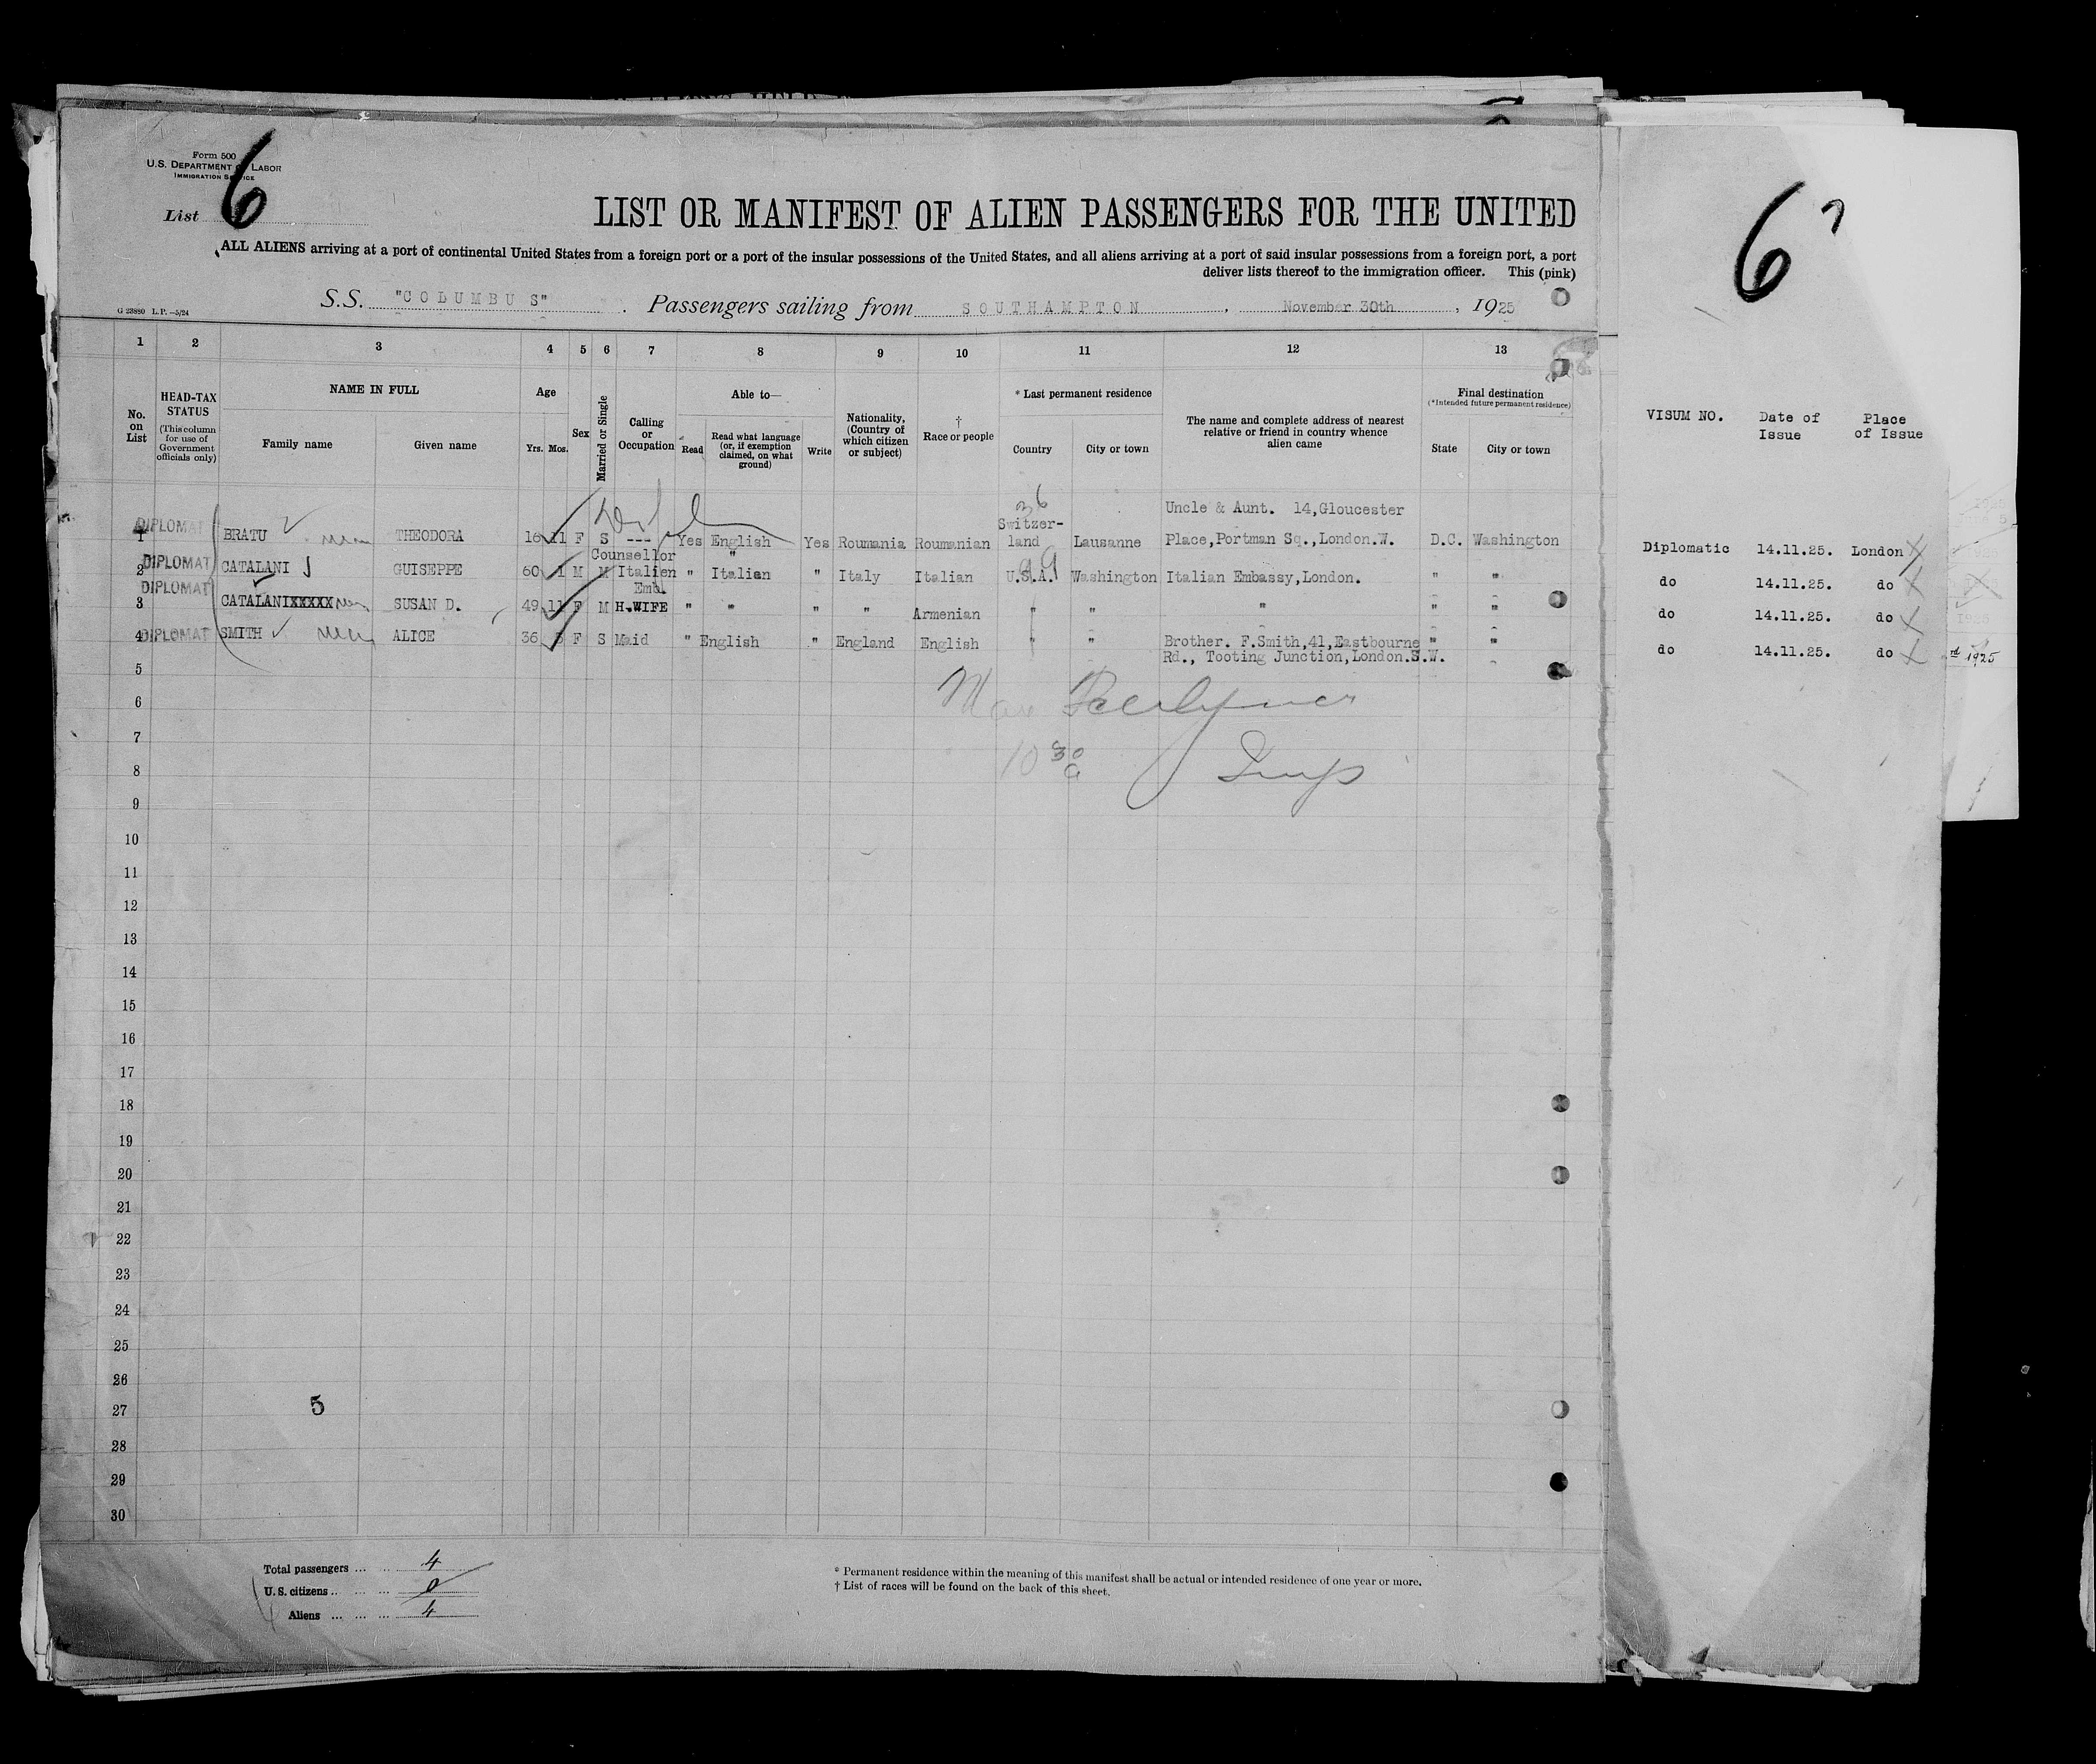 Form 500
U.S. DEPARTMENT OF LABOR
IMMIGRATION SERVICE
List 6
LIST OR MANIFEST OF ALIEN PASSENGERS FOR THE UNITED
ALL ALIENS arriving at a port of continental United States from a foreign port or a port of the insular possessions of the United States, and all aliens arriving at a port of said insular possessions from a foreign port, a port
deliver lists thereof to the immigration officer. This (pink)
S.S. "COLUMBUS" Passengers sailing from SOUTHAMPTON, November 30th, 1925
G 23880 L.P.—5/24
1 2 3 4 5 6 7 8 9 10 11 12 13
No. on List
HEAD-TAX STATUS (This column for use of Government officials only)
NAME IN FULL
Family name Given name
Age
Yrs. Mos.
Sex
Married or Single
Calling or Occupation
Able to—
Read
Read what language (or, if exemption claimed, on what ground)
Write
Nationality, (Country of which citizen or subject)
† Race or people
* Last permanent residence
Country City or town
The name and complete address of nearest relative or friend in country whence alien came
Final destination
(*Intended future permanent residence)
State City or town
Uncle & Aunt. 14,Gloucester
1 DIPLOMAT BRATU THEODORA 16 11 F S --- Yes English Yes Roumania Roumanian Switzer-land Lausanne Place,Portman Sq.,London.W. D.C. Washington
2 DIPLOMAT CATALANI GUISEPPE 60 1 M M Counsellor Italien Emb. " Italian " Italy Italian U.S.A. Washington Italian Embassy,London. " "
3 DIPLOMAT CATALANIXXXXX SUSAN D. 49 11 F M H.WIFE " " " " Armenian " " " " "
4 DIPLOMAT SMITH ALICE 36 5 F S Maid " English " England English " " Brother. F.Smith,41,Eastbourne " "
Rd., Tooting Junction,London.S.W.
5
6
7
10 30 a
8
9
10
11
12
13
14
15
16
17
18
19
20
21
22
23
24
25
26
27 5
28
29
30
Total passengers ... 4
U.S. citizens .. 0
Aliens ... 4
* Permanent residence within the meaning of this manifest shall be actual or intended residence of one year or more.
† List of races will be found on the back of this sheet.
6
VISUM NO. Date of Issue Place of Issue
Diplomatic 14.11.25. London
do 14.11.25. do
do 14.11.25. do
do 14.11.25. do
rd 1925